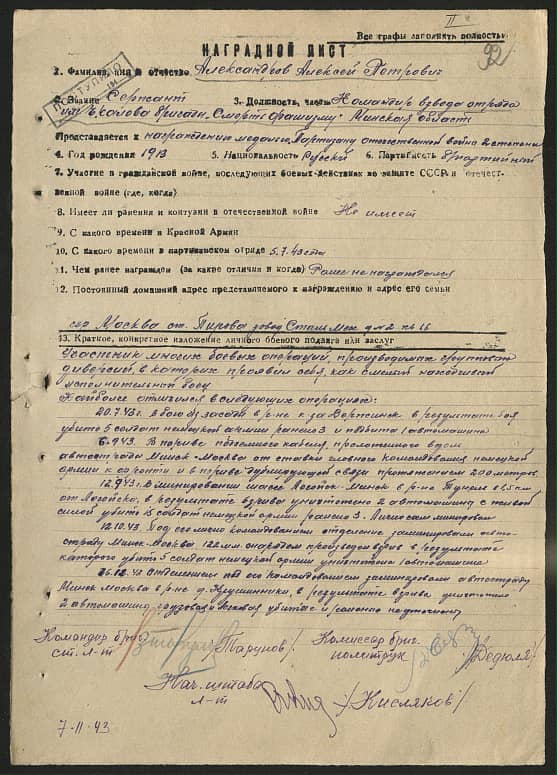 II
Все графы заполнить полностью
92
НАГРАДНОЙ ЛИСТ
ПОСТУПИЛО
1. Фамилия, имя и отчество Александров Алексей Петрович
2. Звание Сержант 3. Должность, часть Командир взвода отряда
им. Чкалова бригады „Смерть фашизму" Минской области
Представляется к награждению медалью „Партизану отечественной войны 2 степени
4. Год рождения 1913 5. Национальность Русский 6. Партийность Б/партийный
7. Участие в гражданской войне, последующих боевых действиях по защите СССР и отечест-
венной войне (где, когда)
8. Имеет ли ранения и контузии в отечественной войне Не имеет
9. С какого времени в Красной Армии
10. С какого времени в партизанском отряде 5.7.43
11. Чем ранее награжден (за какие отличия и когда) Ранее не награждался
12. Постоянный домашний адрес представляемого к награждению и адрес его семьи
гор Москва ст. завод д № 2 кв 16
13. Краткое, конкретное изложение личного боевого подвига или заслуг
Участник многих боевых операций, производимых группами
диверсий, в которых проявил себя, как смелый находчивый
исполнительный боец
Наиболее отличился в следующих операциях:
20.7.43г. в бою из засады в р-не в результате боя
убито 5 солдат немецкой армии ранено 3 и подбита 1 автомашина
6.9.43. В порыве подземного кабеля, проложенного вдоль
автострады Минск-Москва от ставки главного командования немецкой
армии к фронту и в порыве связи протяжением 200 метров.
12.9.43г. В минировании шоссе Логойск-Минск в р-не 1,5 км
от Логойска, в результате взрыва уничтожено 2 автомашины с живой
силой убито солдат немецкой армии ранено 3. Лично сам минировал
12.10.43 Под его командованием отделение заминировали авто-
страду Минск Москва 122 мм снарядом произведен взрыв в результате
которого убито 5 солдат немецкой армии уничтожена 1 автомашина
26.12.43 Отделением под его командованием заминировали автостраду
Минск Москва в р-не д. в результате взрыва уничтожено
2 автомашины грузовая и легковая убитые и ранены не уточнены
Командир бриг. /Тарунов/ Комиссар бриг. /Дедюля/
ст. л-т политрук
Нач. штаба
л-т /Кисляков/
7-II-43